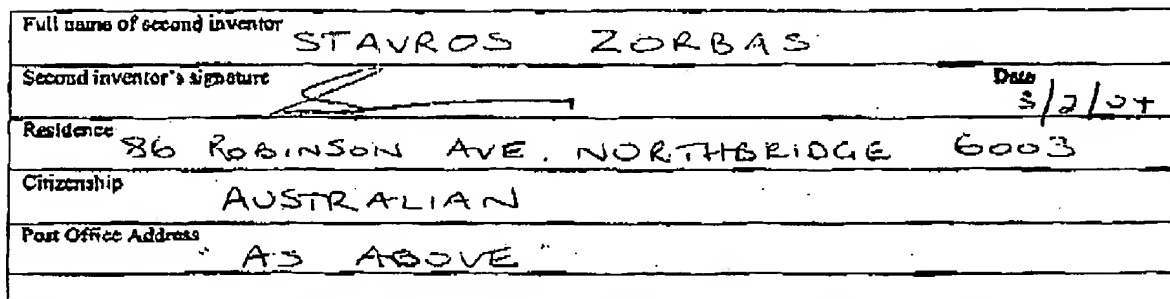 Full name of second inventor STAVROS ZORBAS
Second inventor's signature Date
3/2/04
Residence 86 ROBINSON AVE. NORTHBRIDGE 6003
Citizenship AUSTRALIAN
Post Office Address "AS ABOVE"